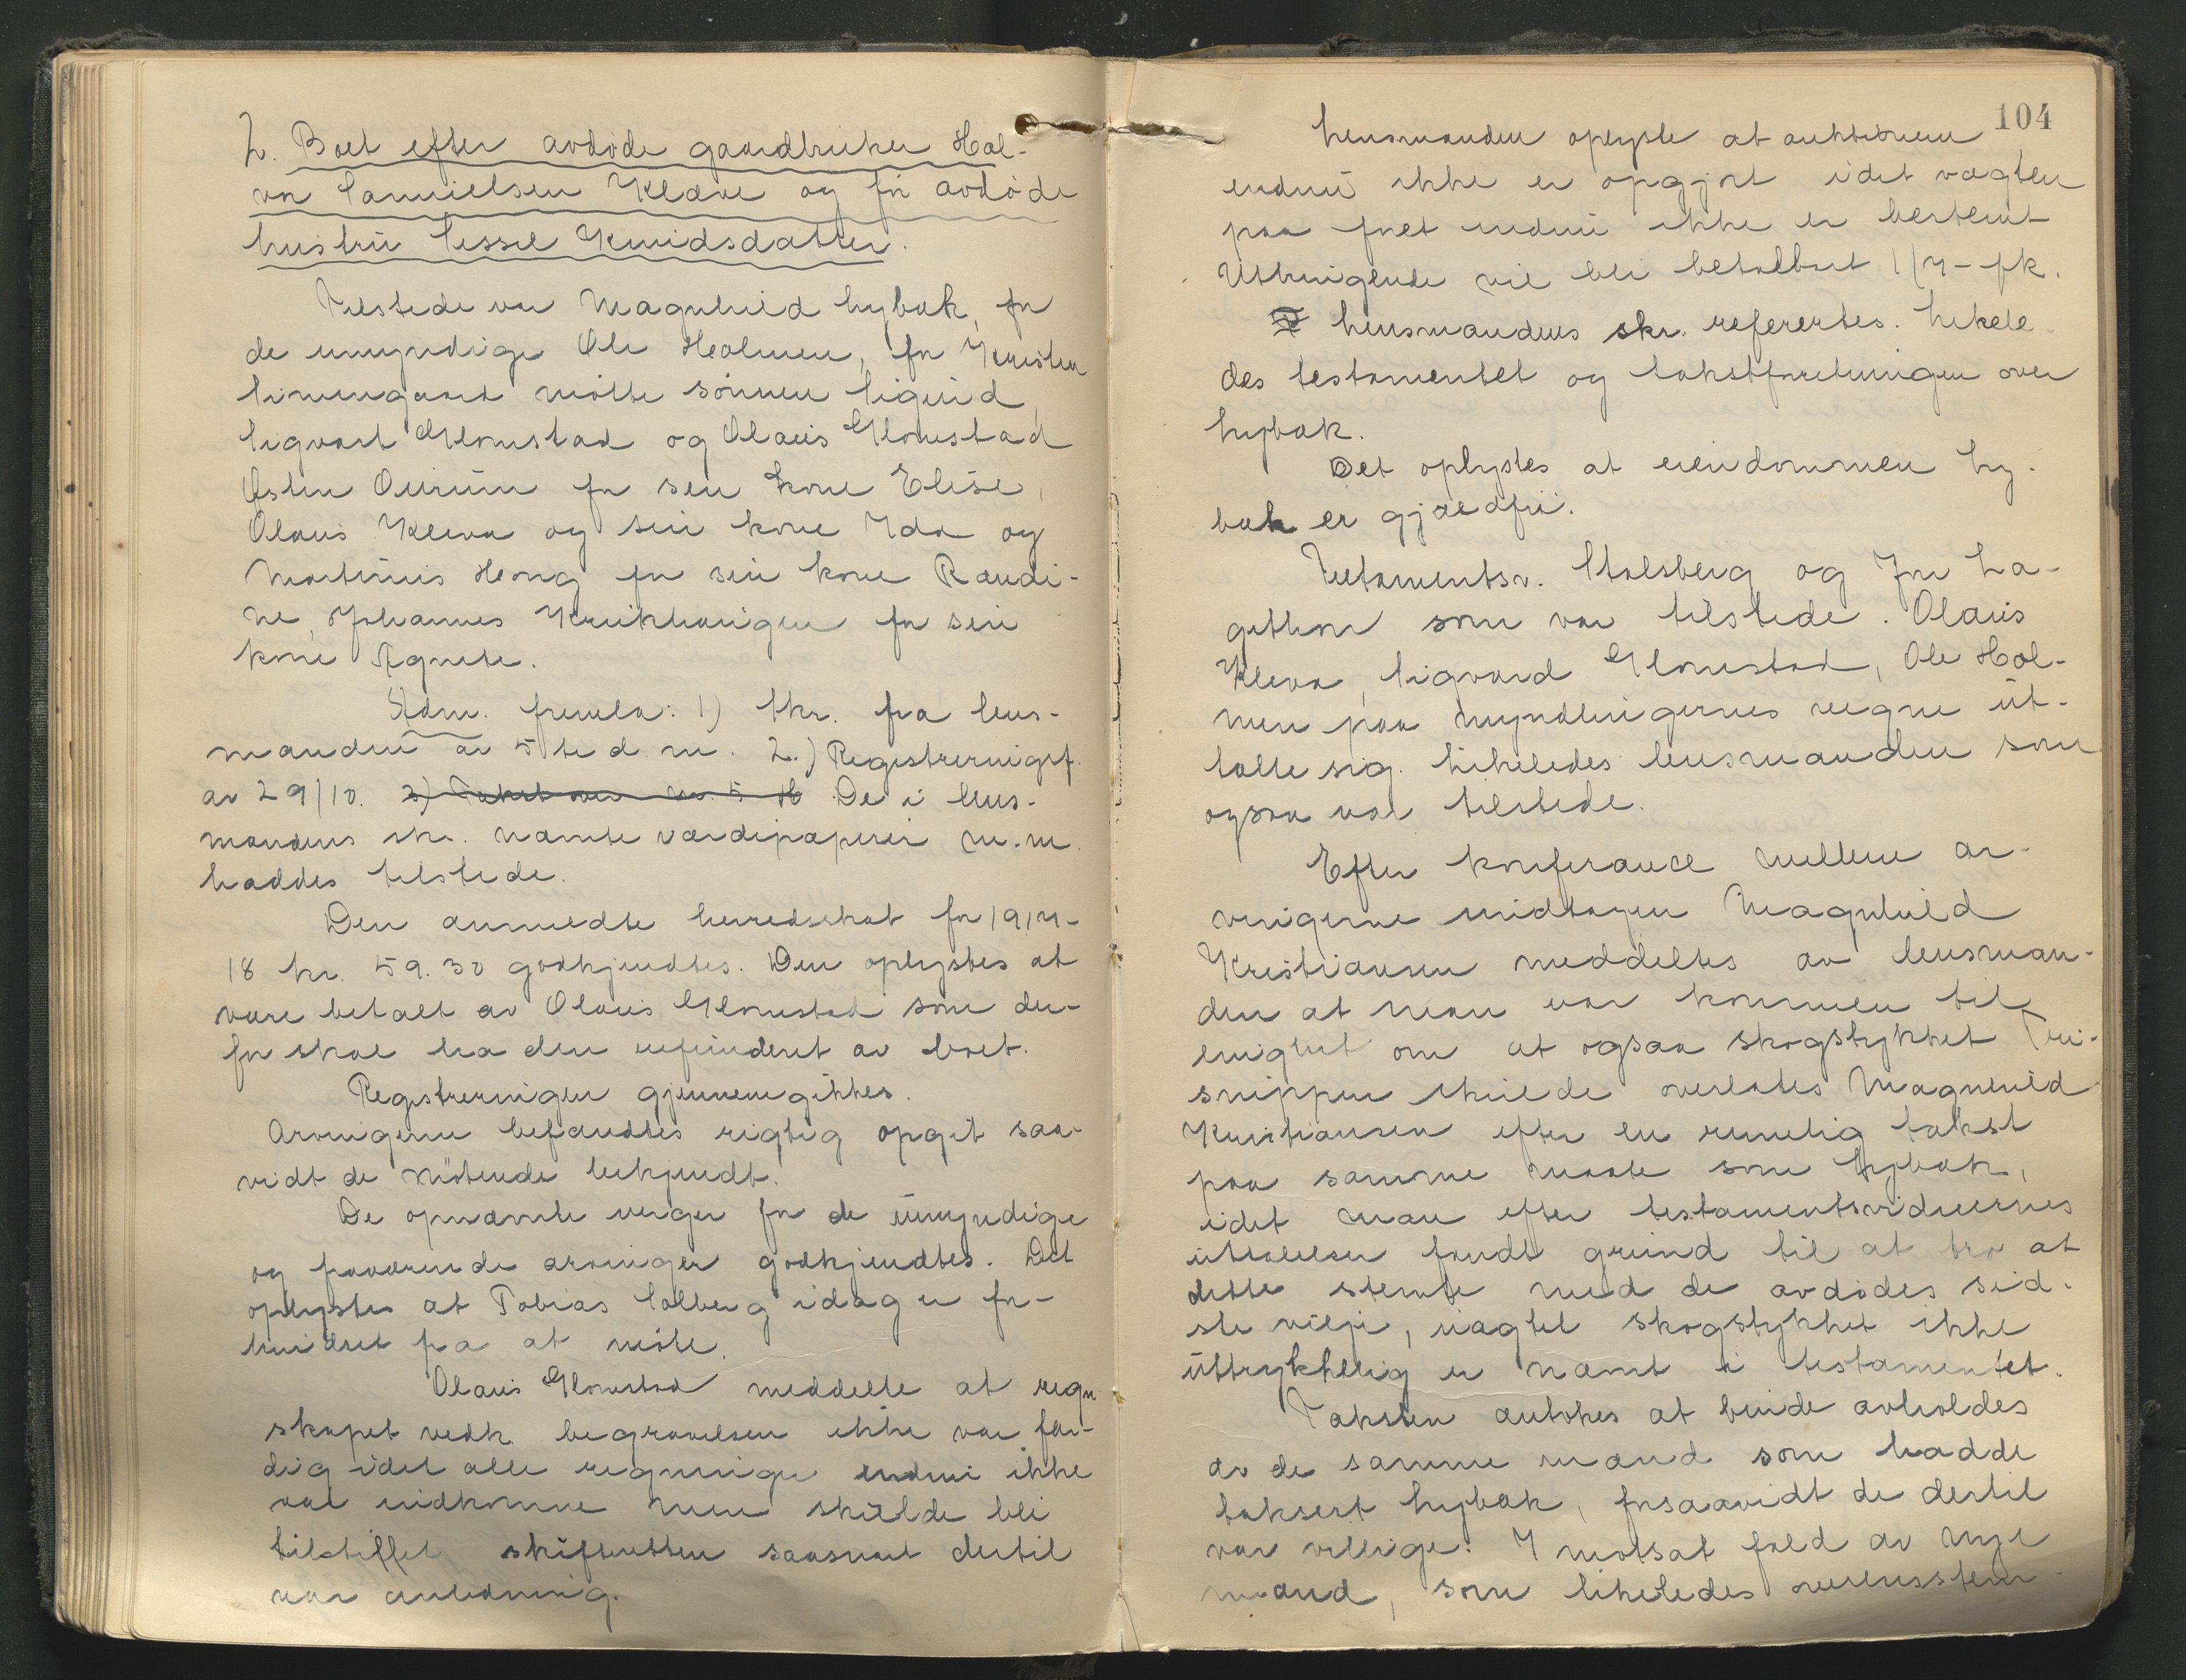 2. Boet efter avdøde gaardbruker Hal-
vor Samuelsen Kleve og før avdøde
hustru Sessel Knudsdatter.
Tilstede var Magnhild Lybæk, for
de umyndige Ole Holmen, for Kristen
møtte sønnen Sigurd,
Sigvart Glomstad og Olaus Glomstad
Østen Aurum for sin kone Elise,
Olaus Kleva og sin kone Ida og
Martinus Houg for sin kone Randi-
ne, Johannes for sin
kone Agnete.
Adm. fremla: 1) Skr. fra lens-
manden av 5te d. m. 2.) Registreringsf.
av 29/10. De i lens-
mandens skr. nævnte værdipapirer m.m.
haddes tilstede.
Den anmeldte herredsskat for 1917-
18 kr. 59.30 godkjendtes. Den oplystes at
være betalt av Olaus Glomstad som der-
for skal ha den refunderet av boet.
Registreringen gjennemgikkes.
Arvingerne befandtes rigtig opgit saa-
vidt de møtende bekjendt.
De opnævnte verger for de umyndige
og fraværende arvinger godkjendtes. Det
oplystes at Tobias Solberg idag er for-
hindret fra at møte.
Olaus Glomstad meddelte at regn-
skapet vedk. begravelsen ikke var fær-
dig idet alle regninger endnu ikke
var indkomne men skulde bli
tilstillet skifteretten saasnart dertil
var anledning.
104
Lensmanden oplyste at auktionen
endnu ikke er opgjort idet vægten
paa foret endnu ikke er bestemt
Utbringende vil bli betalbart 1/4-fk.
Lensmandens skr. refereertes. Likele-
des testamentet og takstforretningen over
Lybæk.
Det oplystes at eiendommen Ly-
bæk er gjældfri.
Testamentsv. Stalsberg og Jon La-
gettom som var tilstede. Olaus
Kleva, Sigvard Glomstad, Ole Hol-
men paa myndlingernes vegne ut-
talte sig. Likeledes lensmanden som
ogsaa var tilstede.
Efter konferance mellem ar-
vingerne undtagen Magnhild
Kristiansen meddeltes av lensman-
den at man var kommen til
enighet om at ogsaa skogstykket
snippen skulde overlates Magnhild
Kristiansen efter en rimelig takst
paa samme maate som Lybæk,
idet man efter testamentsvidnernes
uttalelser fandt grund til at tro at
dette stemte med de avdødes sid-
ste vilje, uagtet skogstykket ikke
uttrykkelig er nævnt i testamentet.
Taksten antokes at burde avholdes
av de samme mænd som hadde
taksert Lybæk, forsaavidt de dertil
var villige. I motsat fald av nye
mænd, som likeledes overensstem-